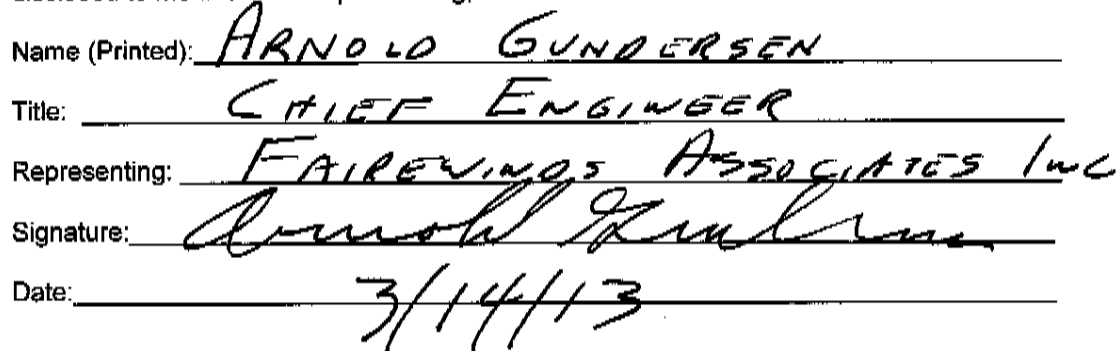 Name (Printed): ARNOLD GUNDERSEN
Title: CHIEF ENGINEER
Representing: FAIREWINDS ASSOCIATES INC
Signature: Arnold Gundersen
Date: 3/14/13